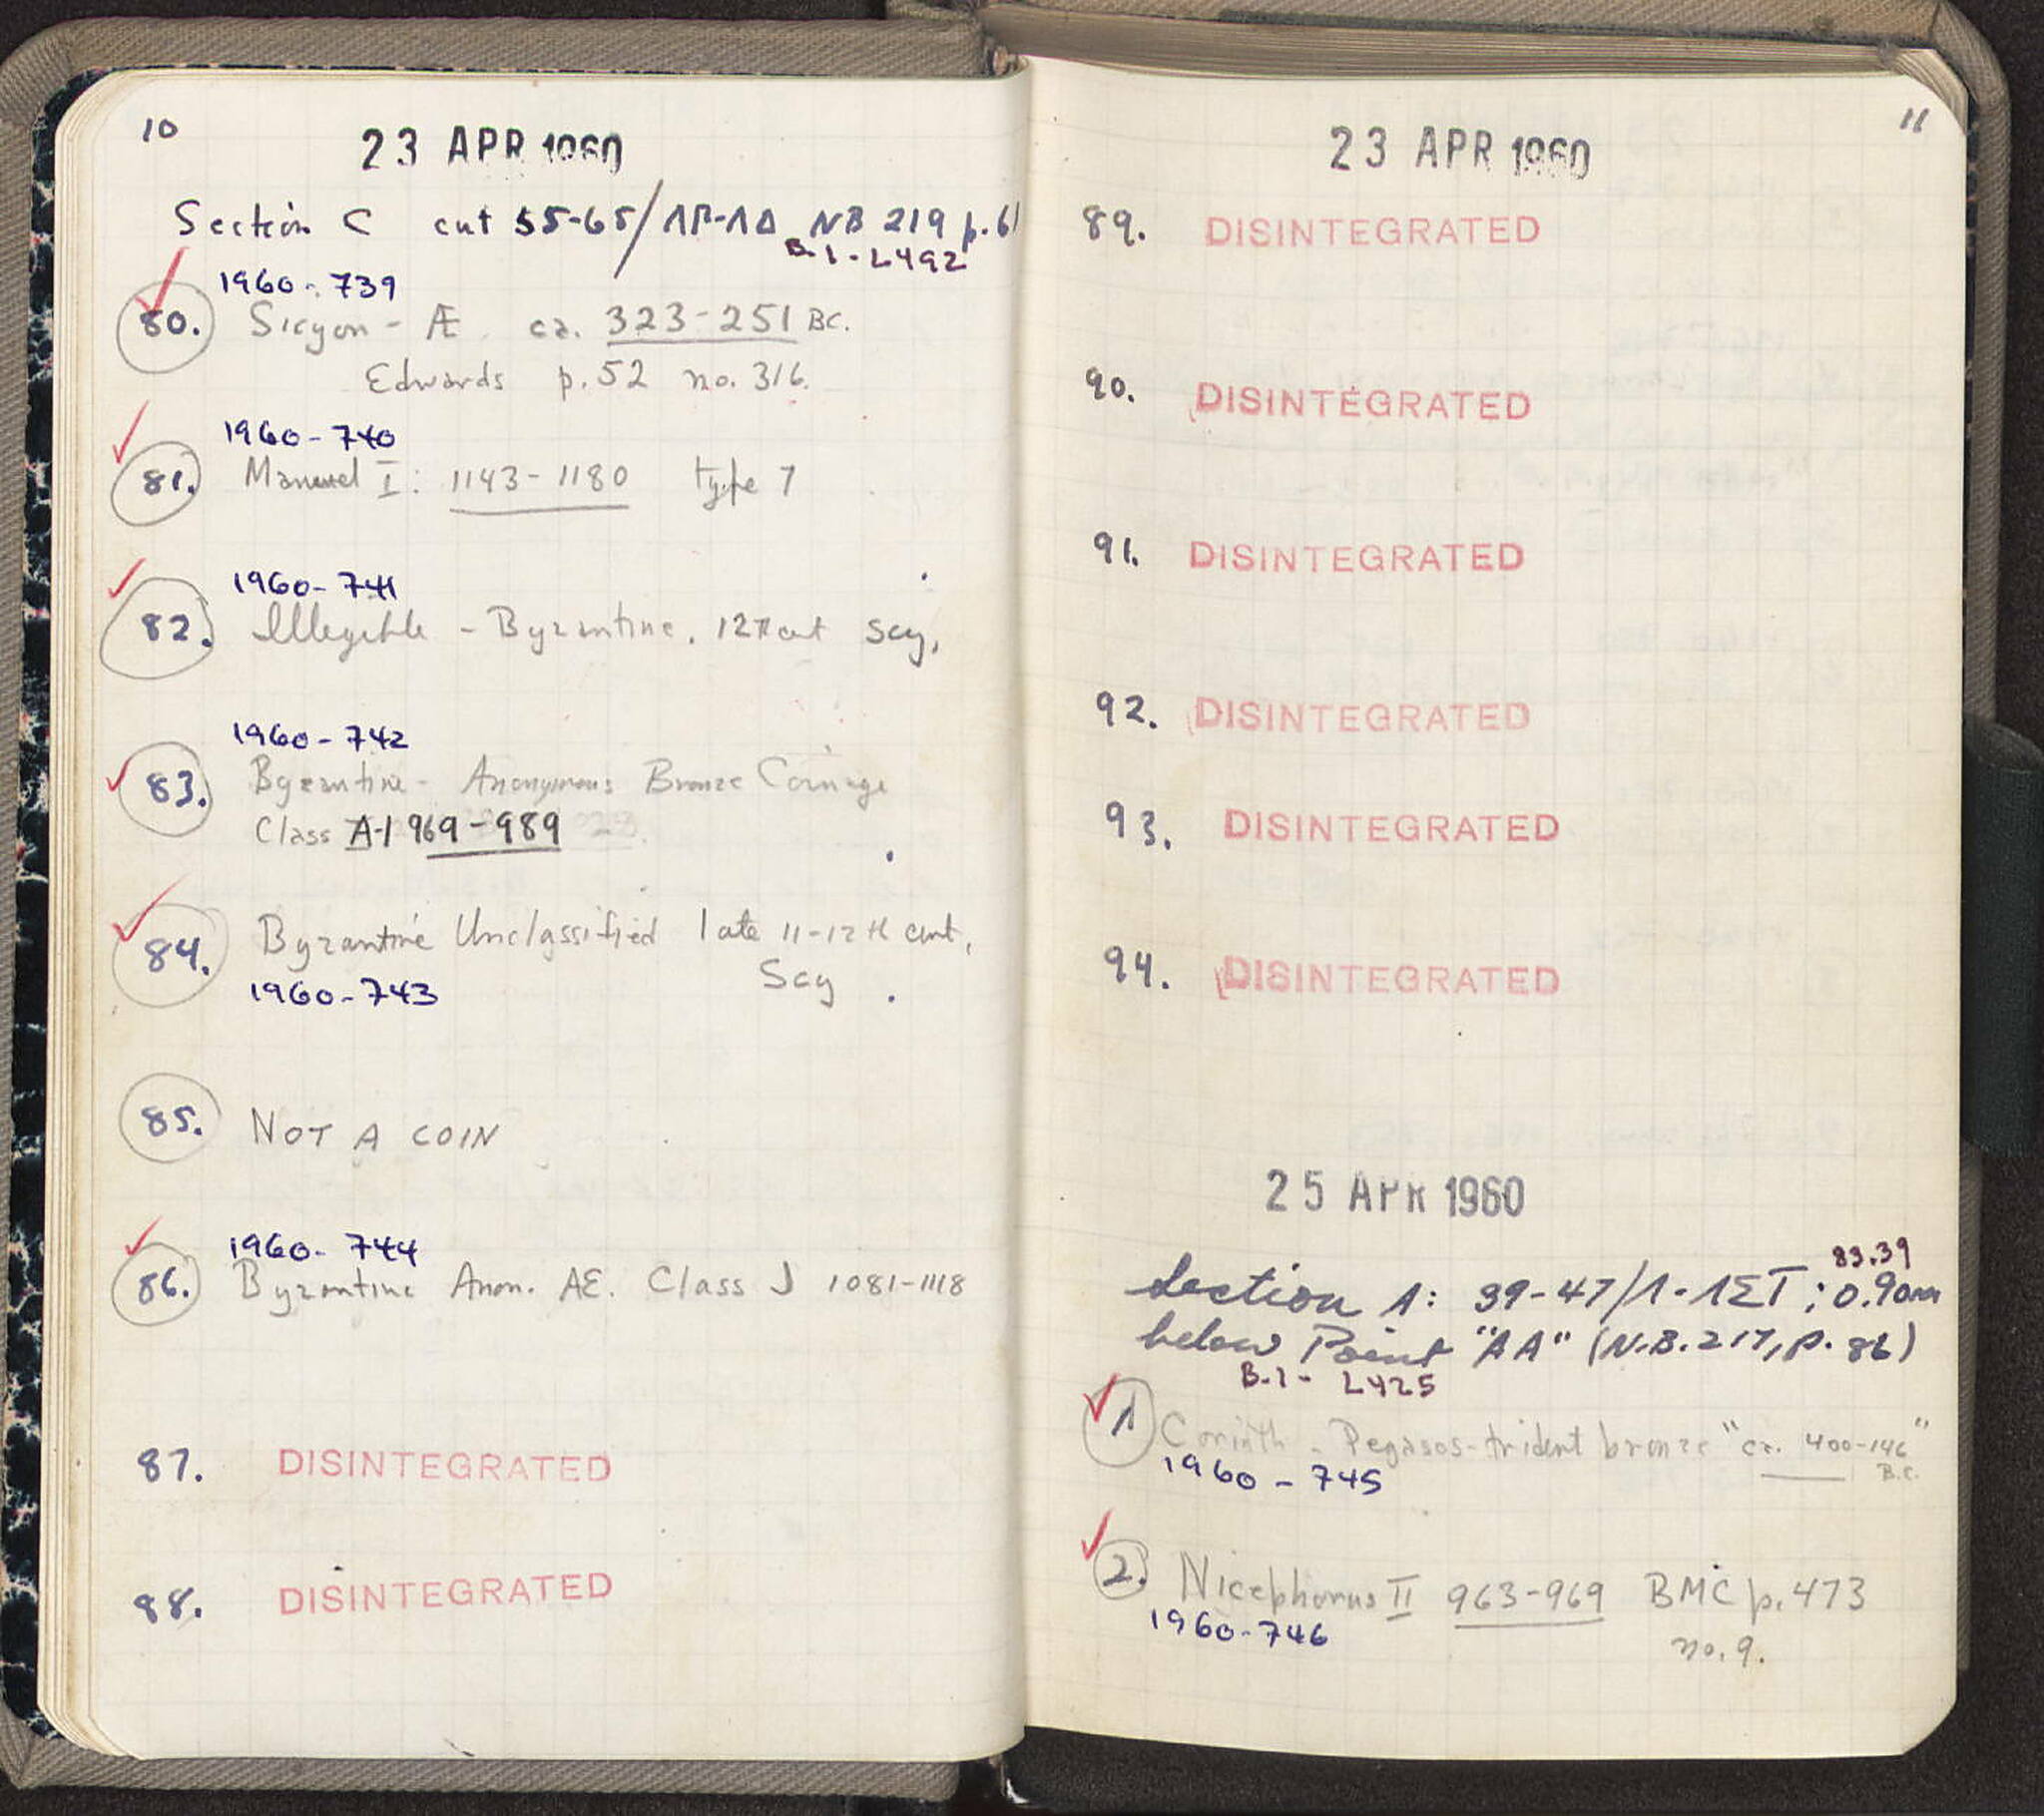 10
23 APR 1960
Section C cut 55-65/ΛΒ-ΛΔ NB 219 p.61
B.1-L492
1960-739
80. Sicyon - Æ ca. 323-251 BC.
Edwards p.52 no. 316.
1960-740
81. Manuel I: 1143-1180 type 7
1960-741
82. Illegible - Byzantine. 12th cent scy,
1960-742
83. Byzantine - Anonymous Bronze Coinage
Class A-1 969-989
84. Byzantine Unclassified late 11-12th cent,
1960-743 Scy
85. NOT A COIN
1960-744
86. Byzantine Anon. AE. Class J 1081-1118
87. DISINTEGRATED
88. DISINTEGRATED
11
23 APR 1960
89. DISINTEGRATED
90. DISINTEGRATED
91. DISINTEGRATED
92. DISINTEGRATED
93. DISINTEGRATED
94. DISINTEGRATED
25 APR 1960
83.39
Section A: 39-47/Λ-ΛΣΤ; 0.90m
below Point "AA" (N.B. 217, p. 86)
B.1- L425
1 Corinth - Pegasos-trident bronze "ca. 400-146"
B.C.
1960-745
2. Nicephorus II 963-969 BMC p.473
1960-746
no. 9.